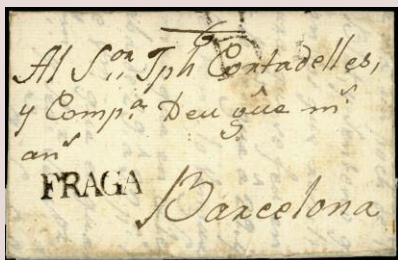 Al S.or Jph Cortadelles,
y Comp.a Deu gũe m.s
an.s
FRAGA
Barcelona